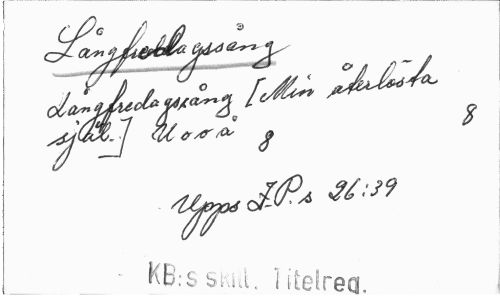 Långfredagssång
Långfredagssång [Min återlösta
själ.] U o o å 8 8
Upps I.P.s 26:39
KB:s skill. Titelreg.